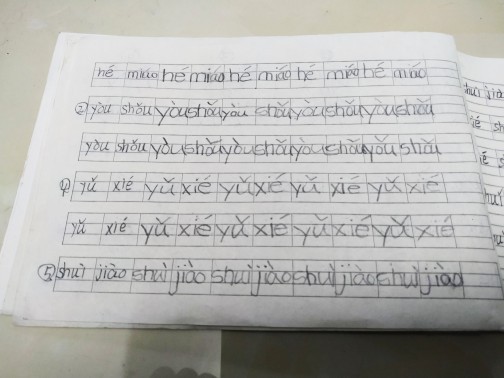 hé miáo hé miáo hé miáo hé miáo hé miáo
② yòu shǒu yòu shǒu yòu shǒu yòu shǒu yòu shǒu
yòu shǒu yòu shǒu yòu shǒu yòu shǒu yòu shǒu
④ yǔ xié yǔ xié yǔ xié yǔ xié yǔ xié
yǔ xié yǔ xié yǔ xié yǔ xié yǔ xié
⑤ shuì jiào shuì jiào shuì jiào shuì jiào shuì jiào